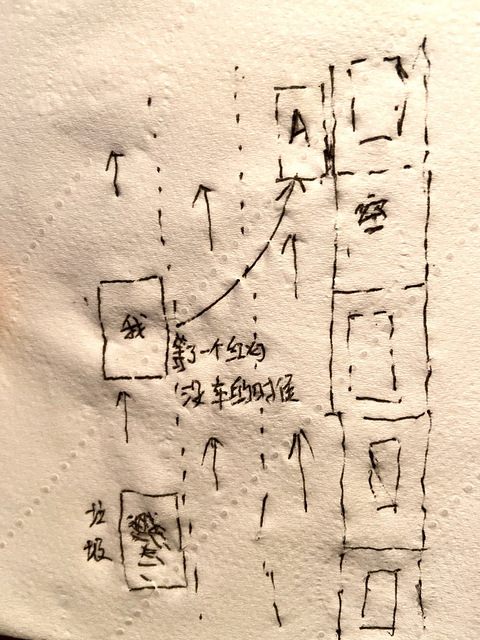 A
空
我
等了一个红灯
没车的时候
垃
圾